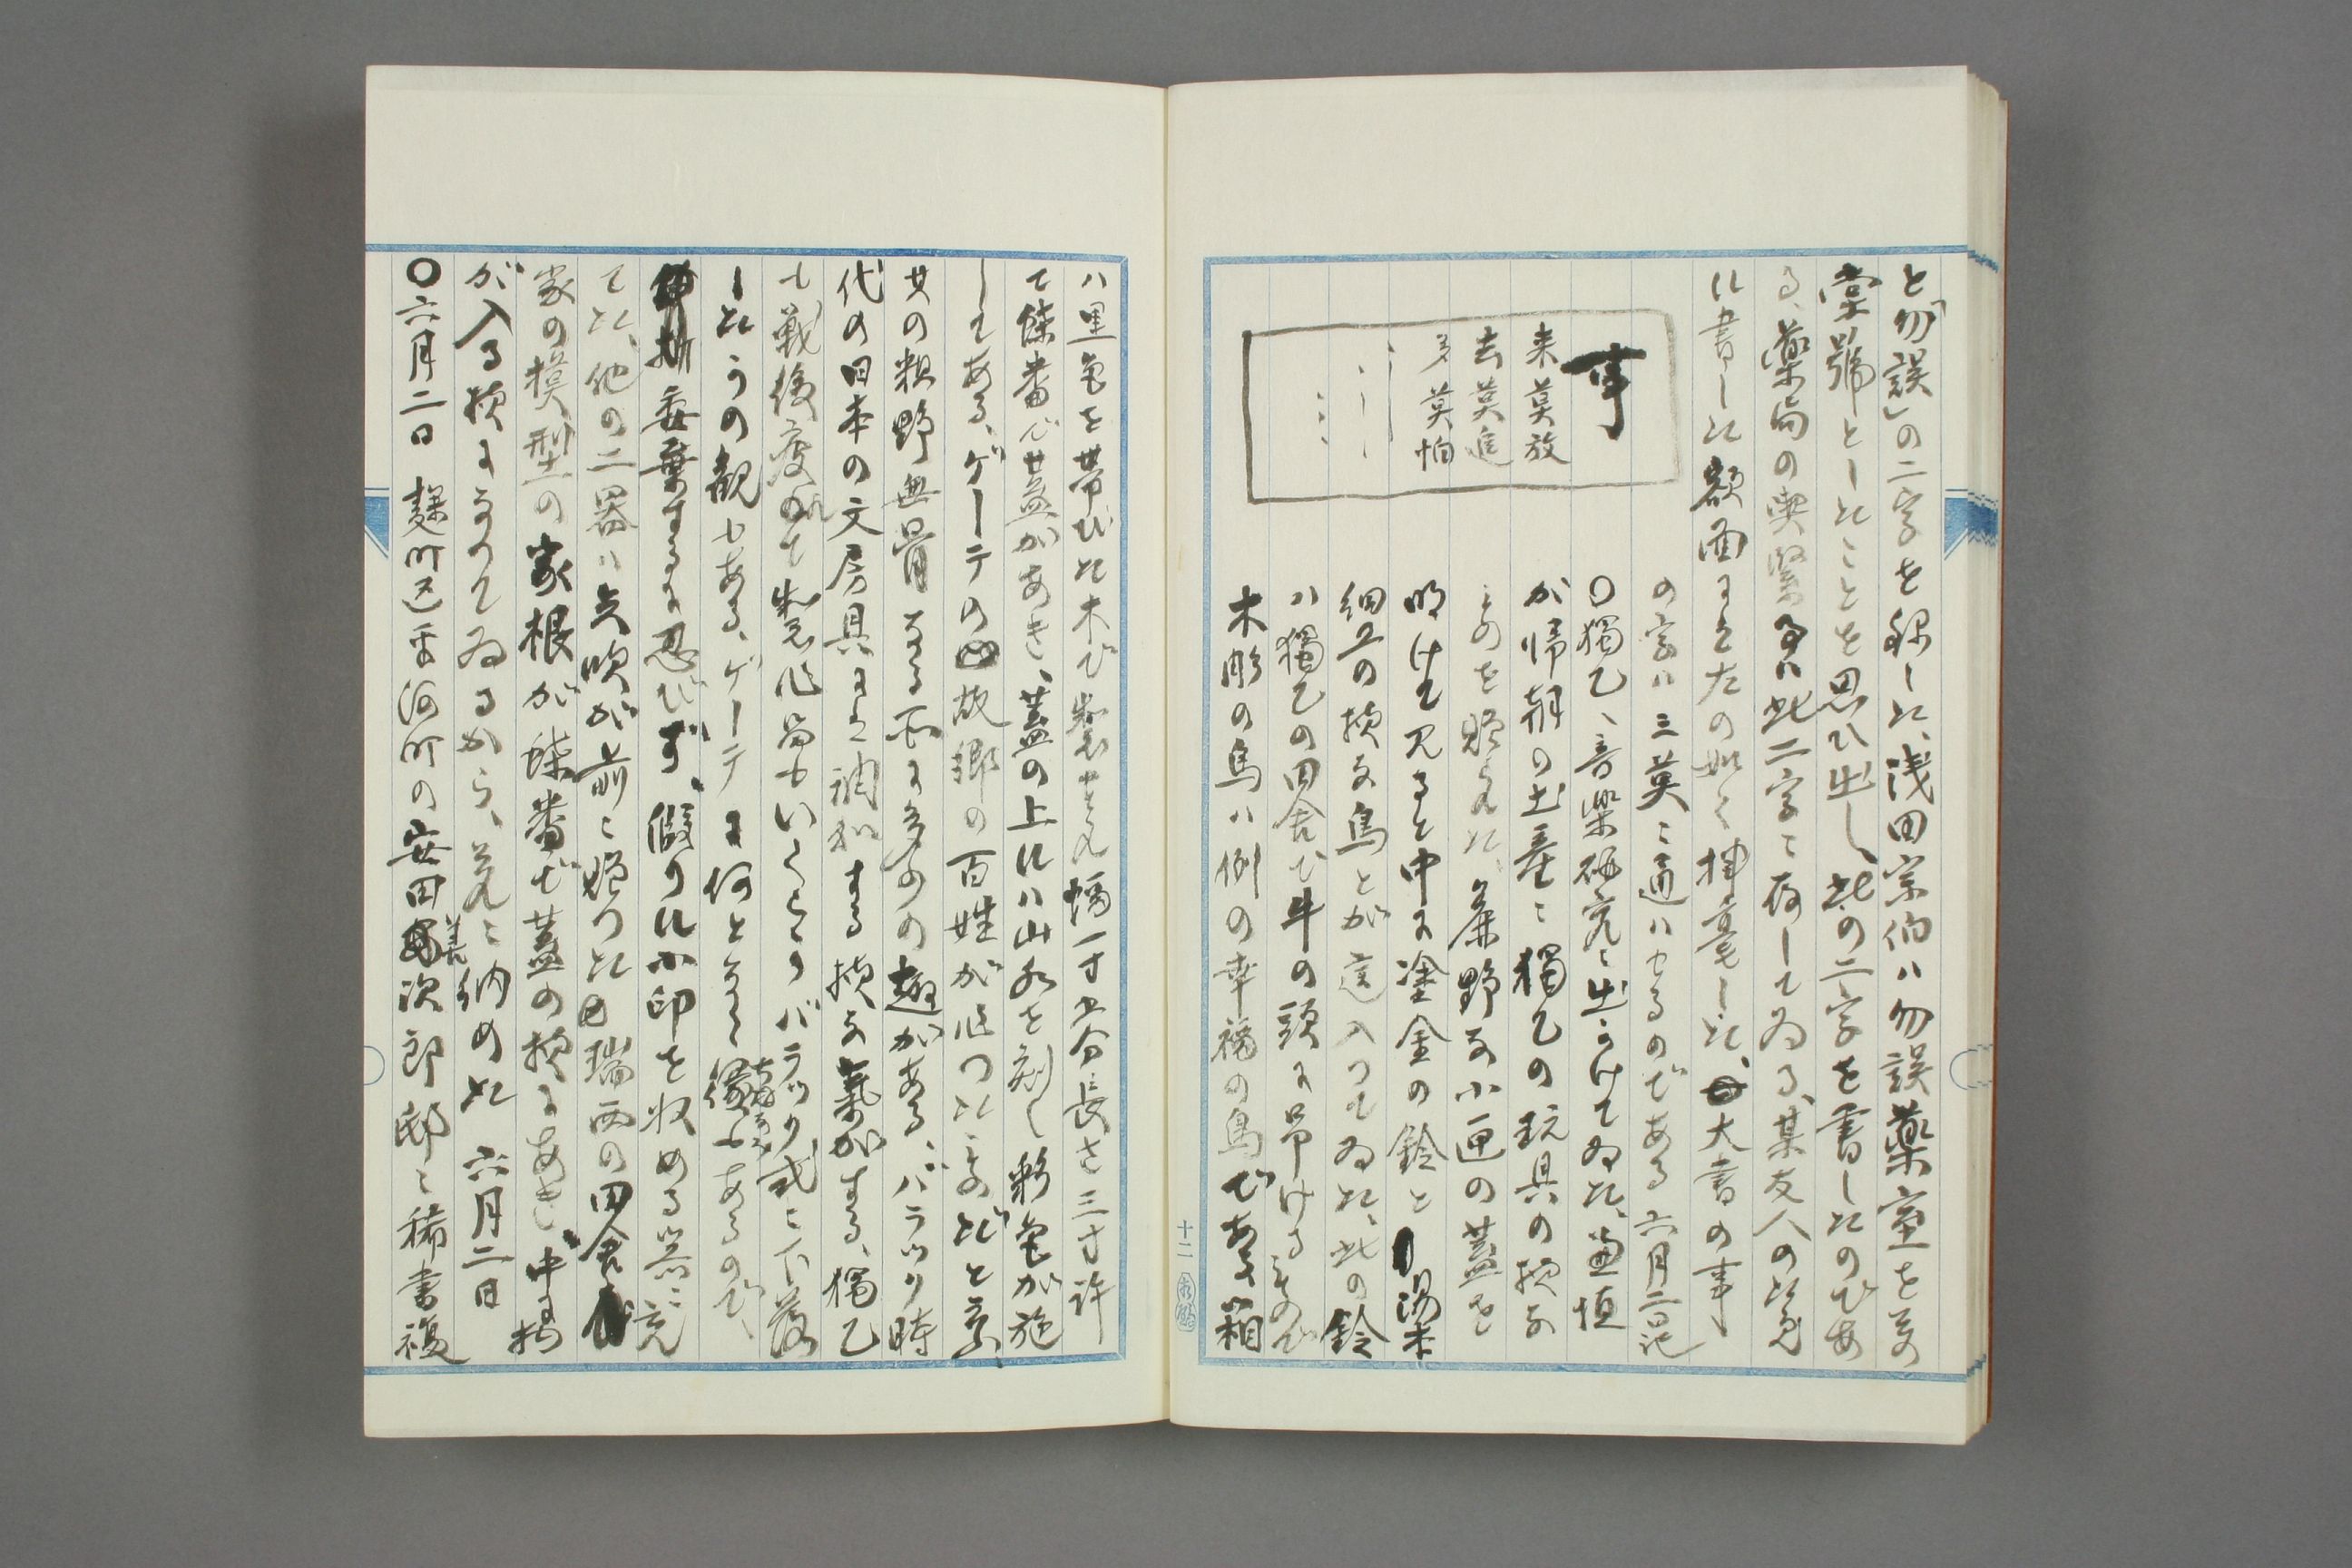 と「勿誤」の二字を録した、浅田宗伯ハ勿誤薬室を其の
堂號としたことを思ひ出し、此の二字を書したのであ
る、薬局の喫緊事ハ此二字に存してゐる、某友人の
に書した額面にも左の如く揮毫した、大書の事
の字ハ三莫に通ハせるのである 六月二日記
事
来莫放
去莫追
多莫怕
〇獨乙に音楽研究に出かけてゐた
が帰朝の土産に獨乙の玩具の様な
ものを贈られた、麁野な小匣の蓋を
明けて見ると中に塗金の鈴と
細工の様な鳥とが這入つてゐた、此の鈴
ハ獨乙の田舎で牛の頭に吊けるもので
木彫の鳥ハ例の幸福の鳥である、箱
ハ黒色を帯びた木で製せられ幅一寸五分長さ三寸許
て蝶番で蓋があき、蓋の上にハ山水を刻し彩色が施
してある、ゲーテの故郷の百姓が作つたものだと云ふ、
其の粗野無骨なる所に多少の趣がある、バラック時
代の日本の文房具にも調和する様な氣がする、獨乙
も戦後疲れて製作品もいくらかバラック式に下落
したかの観もある、ゲーテに何となく縁もあるので、
委棄するに忍びず、假りに小印を収める器に充
てた、他の二器ハ矢吹が前に贈つた瑞西の田舎
家の模型の家根が蝶番で蓋の様にあき、中に物
が入る様になつてゐるから、之れに納めた 六月二日
〇六月二日 麹町区平河町の安田善次郎邸に稀書複
十二